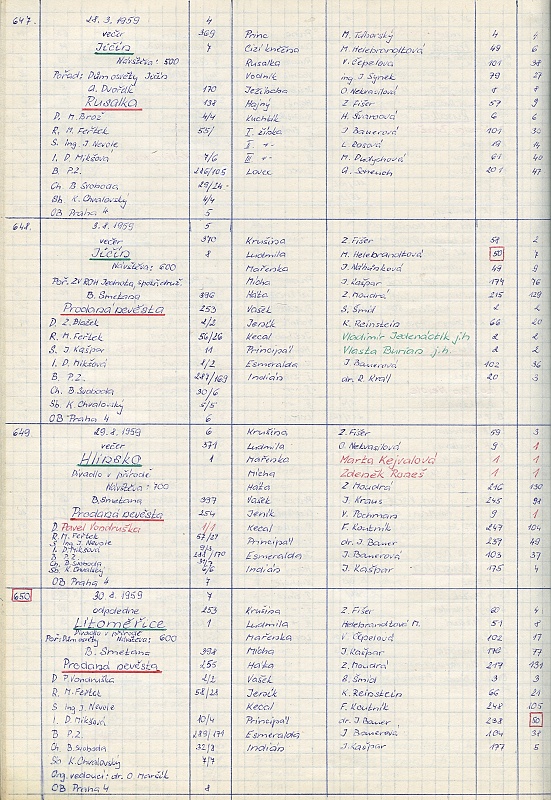 647. 28. 3. 1959 4
večer 369 Princ M. Tuhorský 4 4
Jičín 7 Cizí kněžna M. Helebrandtová 49 6
Návštěva: 500 Rusalka V. Čepelová 101 38
Pořad: Dům osvěty Jičín Vodník ing. J. Synek 79 27
A. Dvořák 170 Ježibaba O. Nekvasilová
Rusalka 138 Hajný Z. Fišer 57 9
D. M. Brož 4/4 Kuchtík H. Švarcová 6 6
R. M. Feřtek 55/ I. žínka J. Bauerová 101 30
S. Ing. J. Nevole II -"- L. Rosová 19 14
I. D. Mikšova 7/6 III -"- M. Dudychová 61 40
B. P.Z. 286/105 Lovec A. 201 47
Ch. B. Svoboda 29/24 -
Sb. K. Chvalovský 4/4
OB Praha 4 5
648. 3. 8. 1959 5
večer 370 Krušina Z. Fišer 58 2
Jičín 8 Ludmila M. Helebrandtová 50 7
Návštěva: 600 Mařenka J. 49 9
Poř. ZV ROH Jednota, spotř. druž. Mícha J. Kašpar 174 76
B. Smetana 396 Háta Z. Moudrá 215 129
Prodaná nevěsta 253 Vašek S. Šmíd 2 2
D. Z. Blažek 2/2 Jeník K. Reinstein 66 20
R. M. Feřtek 56/26 Kecal Vladimír Jedenáctík j.h. 2 2
S. J. Kašpar 11 Principál Vlasta Burian j.h. 2 2
I. D. Mikšová 8/2 Esmeralda J. Bauerová 102 36
B. P.Z. 287/169 Indián dr. R. Kráľ 20 3
Ch. B. Svoboda 30/6
Sb. K. Chvalovský 5/5
OB Praha 4 6
649 29. 8. 1959 6 Krušina Z. Fišer 59 3
večer 371 Ludmila O. Nekvasilová 9 1
Hlinsko 1 Mařenka Marta Kejvalová 1 1
Divadlo v přírodě Mícha Zdeněk 1 1
Návštěva: 700 Háta Z. Moudrá 216 130
B. Smetana 397 Vašek J. Kraus 245 91
Prodaná nevěsta 254 Jeník V. Pochman 9 1
D. Pavel Vondruška 1/1 Kecal F. Koutník 247 104
R. M. Feřtek 57/27 Principál dr. J. Bauer 237 49
S. Ing. J. Nevole
I. D. Mikšová 9/3 Esmeralda J. Bauerová 103 37
B. P.Z. 288/170
Ch. B. Svoboda 31/7 Indián J. Kašpar 175 4
Sb. K. Chvalovský 6/6
OB Praha 4 7
650 30. 8. 1959 7
odpoledne 253 Krušina Z. Fišer 60 4
Litoměřice 1 Ludmila Helebrandtová M. 51 8
Divadlo v přírodě
Poř: Dům osvěty Návštěva: 600 Mařenka V. Čepelová 102 17
B. Smetana 398 Mícha J. Kašpar 176 77
Prodaná nevěsta 255 Háta Z. Moudrá 217 131
D. P. Vondruška 2/2 Vašek S. Šmíd 3 3
R. M. Feřtek 58/28 Jeník K. Reinstein 66 21
S Ing. J. Nevole Kecal F. Koutník 248 105
I. D. Mikšová 10/4 Principál dr. J. Bauer 238 50
B. P.Z. 289/171 Esmeralda J. Bauerová 104 38
Ch. B. Svoboda 32/8 Indián J. Kašpar 177 5
Sb K. Chvalovský 7/7
Org. vedoucí: dr. O. Maršík
OB Praha 4 8